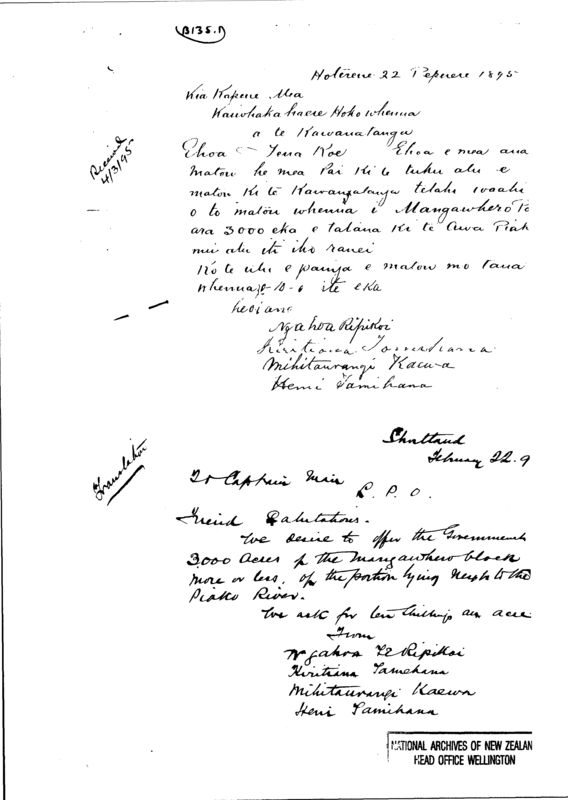 B135.1
Hoterene 22 Pepuere 1895
Kia Kapene Mea
Kaiwhakahaere Hoko whenua
a te Kawanatanga
Received
4/3/95
Ehoa Tena Koe Ehoa e mea ana
matou he mea pai ki te tuku atu e
matou ki te Kawanatanga tetahi waahi
o to matou whenua i Mangawhero
ara 3000 eka e tatana ki te Awa Piak
iti iho ranei
Ko te utu e paingia e matou mo taua
whenua 10 ite eka
heoiano
Ngahoa Ripikoi
Kiritiana Tomehana
Mihitaurangi Kaewa
Hemi Tamihana
Translation
Shortland
February 22. 9
To Captain Mair
L. P. O.
Friend Salutations.
We desire to offer the Government
3,000 Acres of the Mangawhero block
more or less, of the portion lying next to the
Piako River.
We ask for ten shillings an acre
From
Ngahoa Te Ripikoi
Kiritiana Tamehana
Mihitaurangi Kaewa
Heni Tamihana
NATIONAL ARCHIVES OF NEW ZEALAN
HEAD OFFICE WELLINGTON